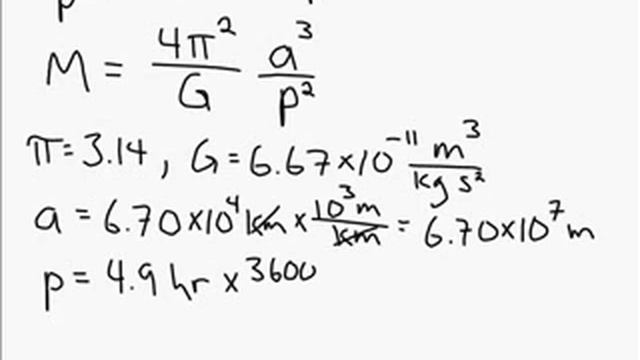 p
M = 4π² / G a³ / p²
π = 3.14 , G = 6.67 × 10⁻¹¹ m³ / kg s²
a = 6.70 × 10⁴ km × 10³ m / km = 6.70 × 10⁷ m
p = 4.9 hr × 3600